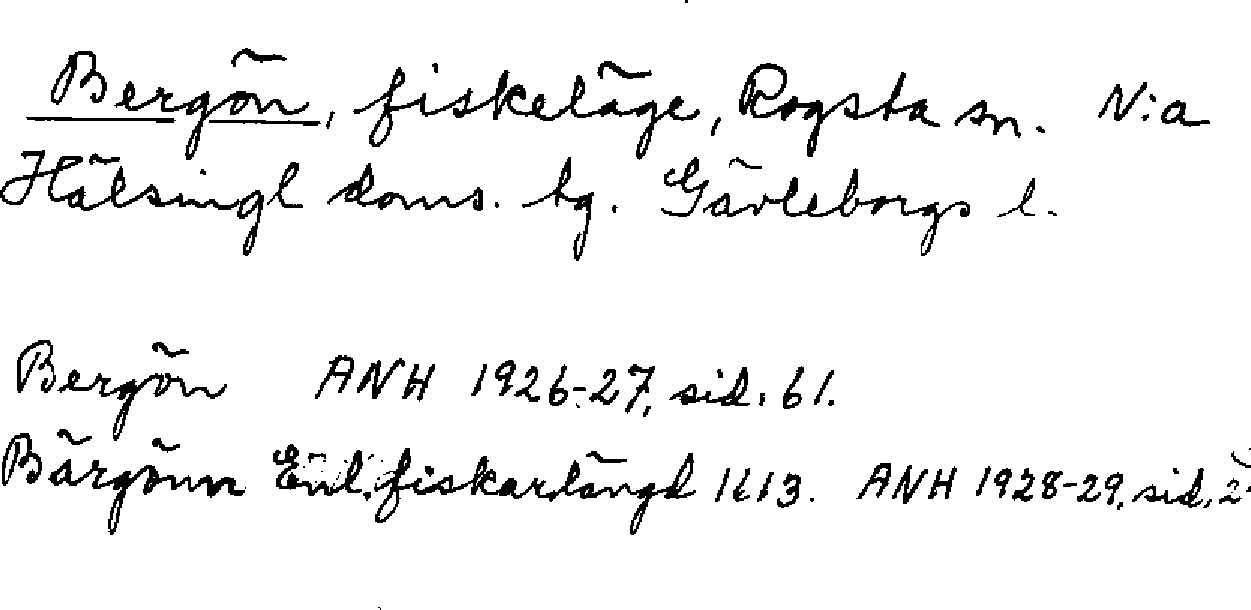 Bergön, fiskeläge, Rogsta sn. N:a
Hälsingl doms. tg. Gävleborgs l.
Bergön ANH 1926-27, sid. 61.
Bärgönn Enl. fiskarlängd 1613. ANH 1928-29, sid.